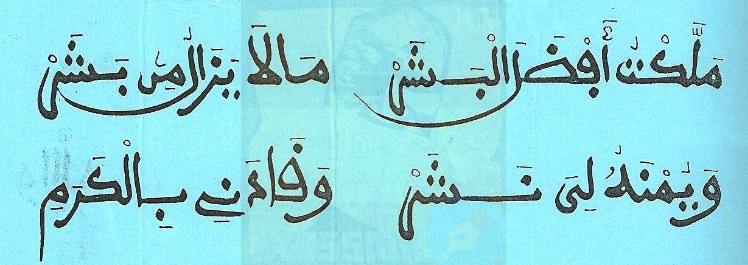 مَلَّكْتُ أَفْضَلَ الْبَشَرْ مَالَا يَزَالُ مِن بَشَرْ
وَيُمْنَهُ لِيَ نَشَرْ وَقَادَنِي بِالْكَرَمِ